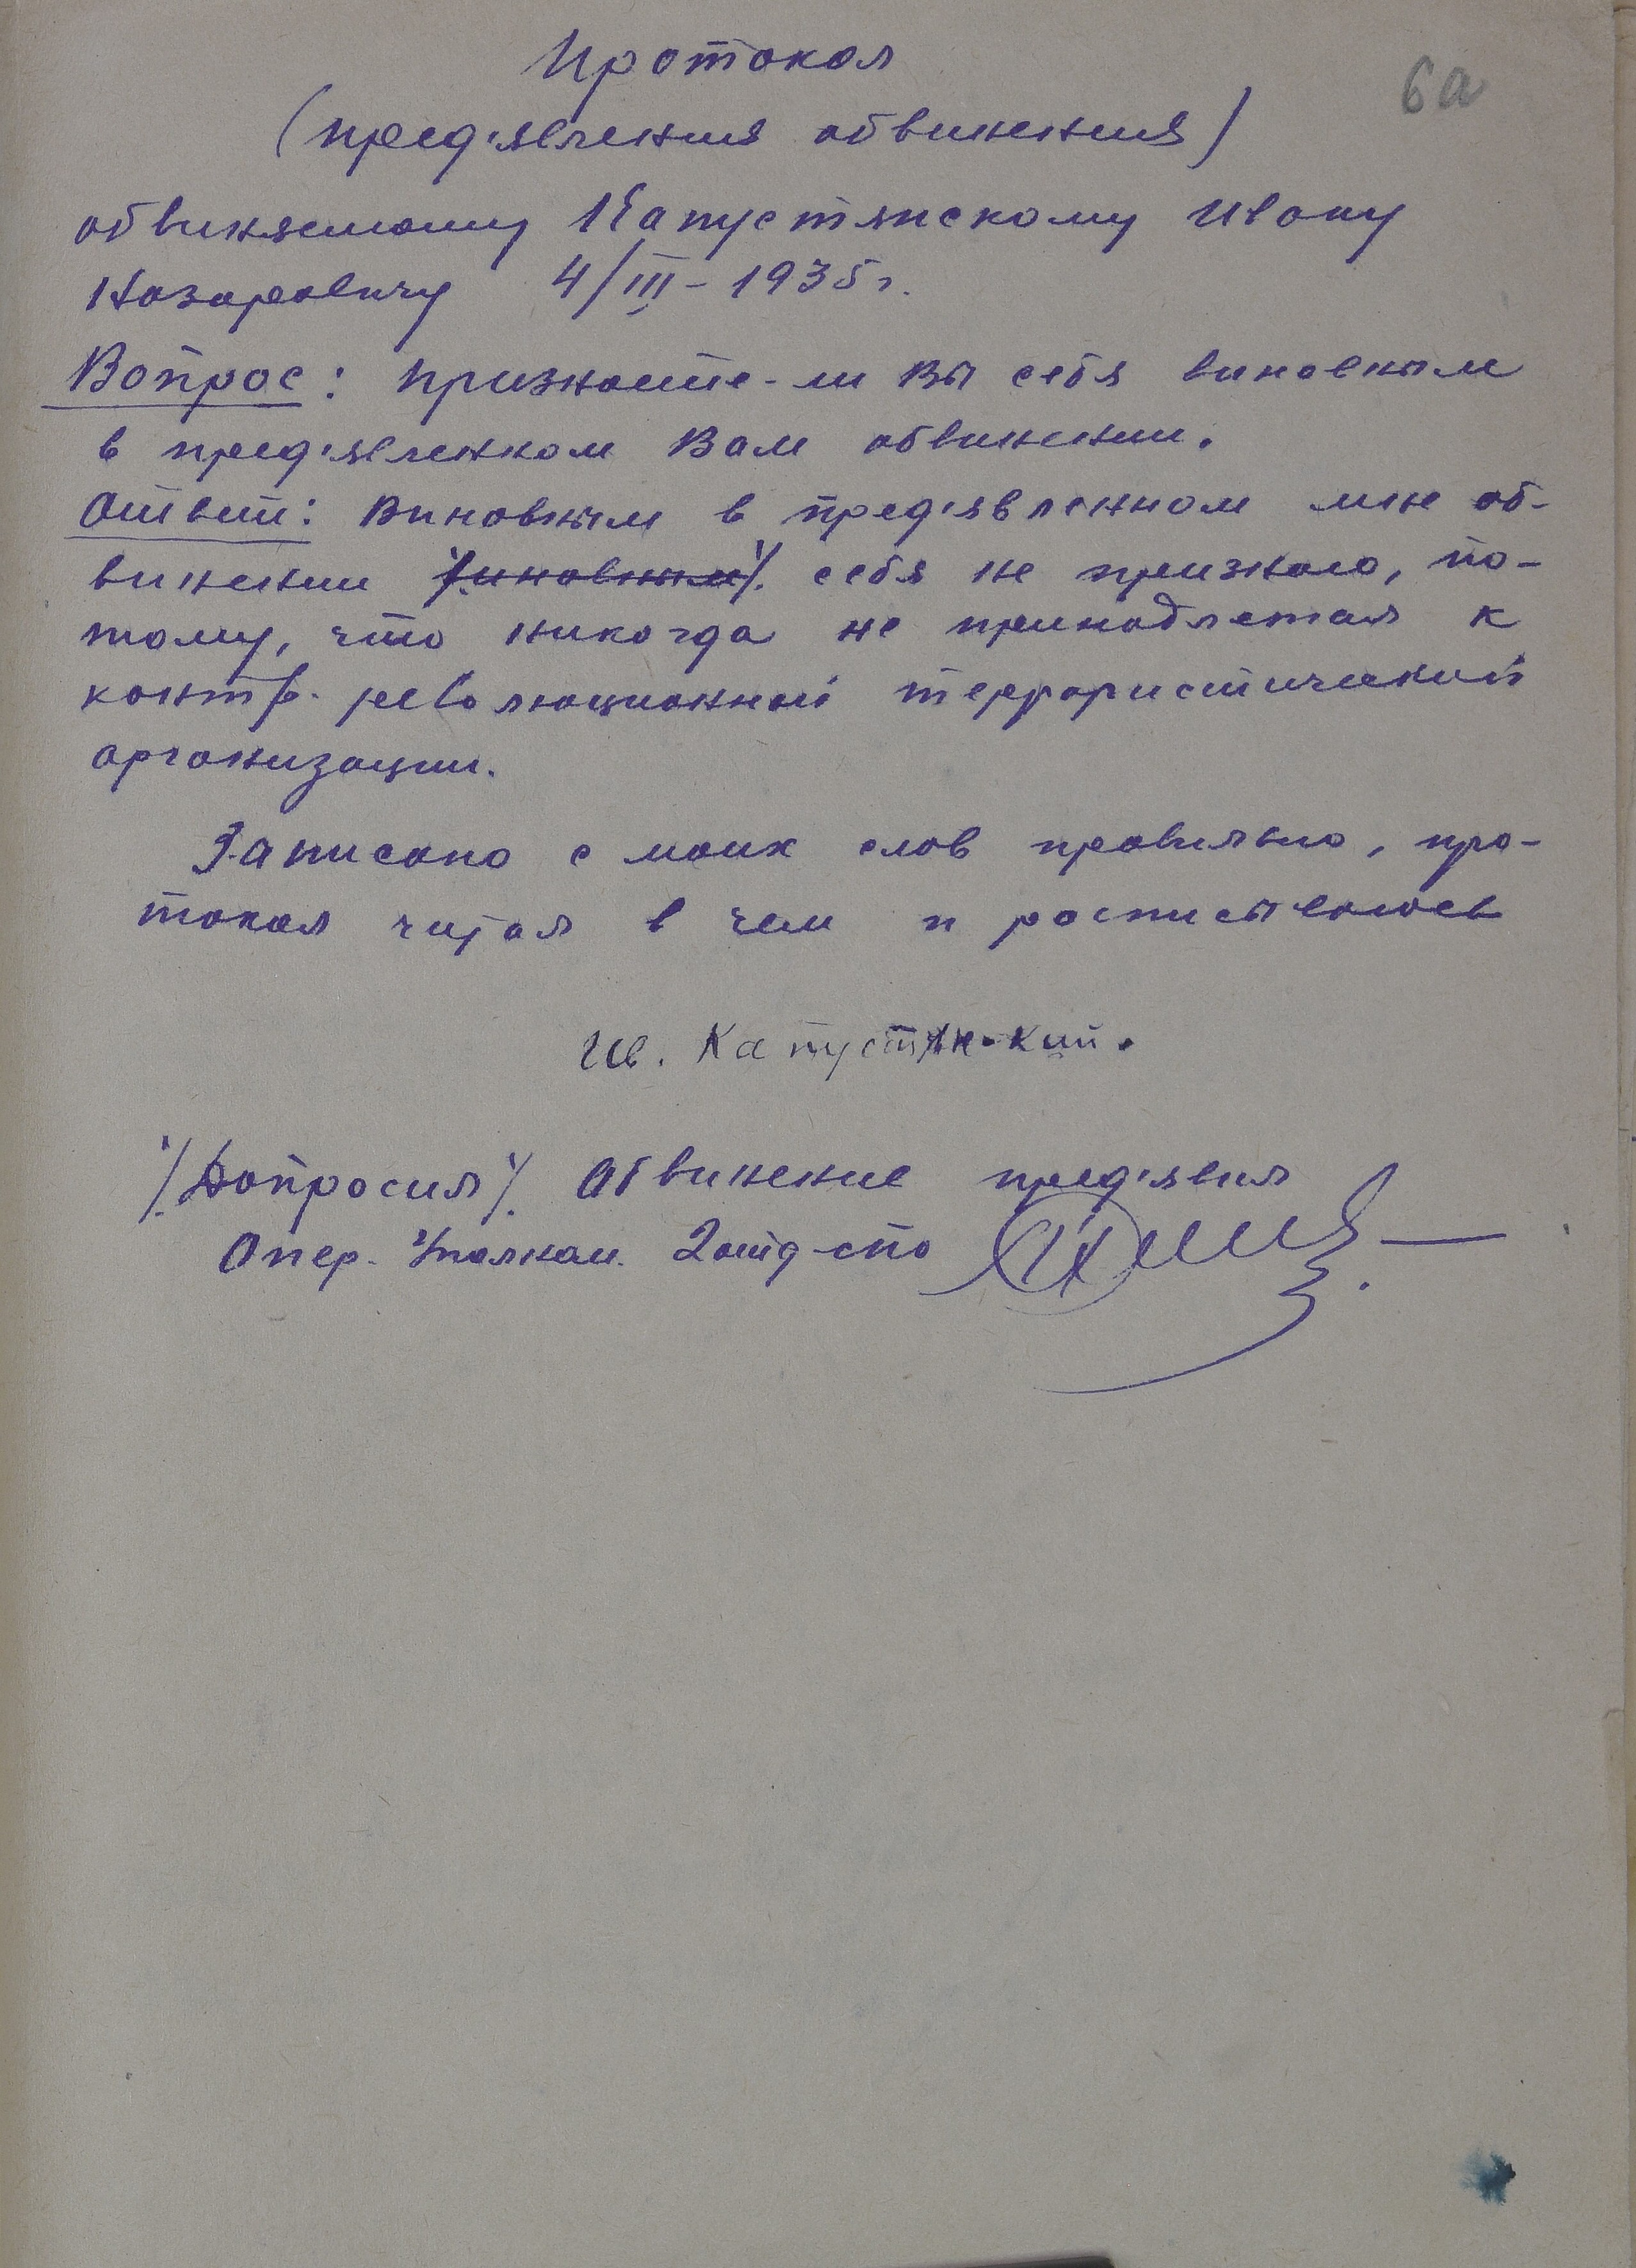 Протокол
6а
(пред'явления обвинения)
обвиняемому Капустянскому Ивану
Назаровичу 4/III – 1935 г.
Вопрос: признаете-ли Вы себя виновным
в пред'явленном Вам обвинении.
Ответ: Виновным в пред'явленном мне об-
винении ./виновным/. себя не признаю, по-
тому, что никогда не принадлежал к
контр-революционной террористической
организации.
Записано с моих слов правильно, про-
токол читал в чем и расписываюсь
Ив. Капустянский.
./Допросил/. Обвинение пред'явил
Опер. Уполном. 2 отд СПО